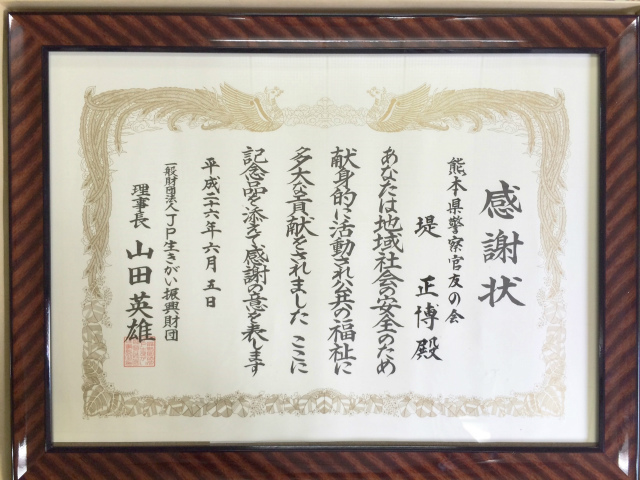 感謝状
熊本県警察官友の会
堤 正博 殿
あなたは地域社会の安全のため
献身的に活動され公共の福祉に
多大な貢献をされました ここに
記念品を添えて感謝の意を表します
平成二十六年六月五日
一般財団法人JP生きがい振興財団
理事長 山田英雄